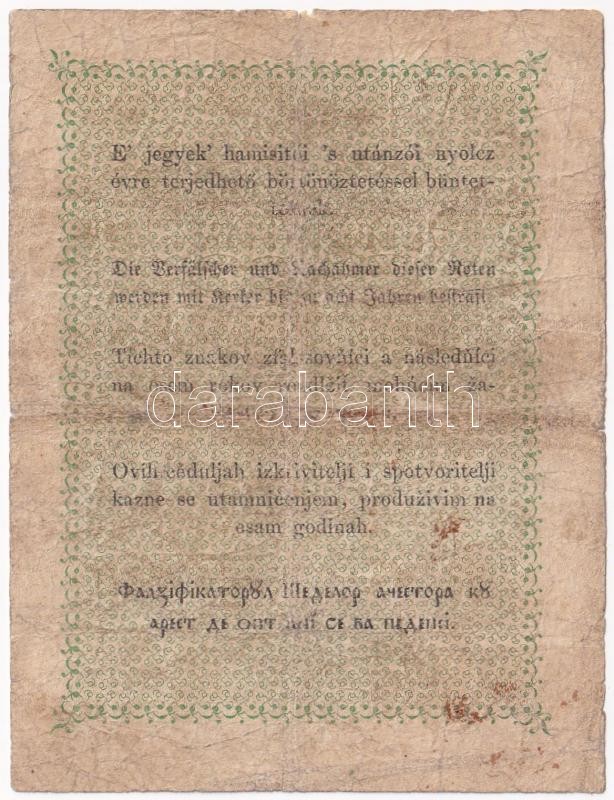 E' jegyek' hamisitói 's utánzói nyolcz
évre terjedhető börtönöztetéssel büntet-
tetnek.
Die Verfälscher und Nachahmer dieser Noten
werden mit Kerker bis zu acht Jahren bestraft.
Tichto znakov
a následňíci
na osem rokov
ža-
darabanth
Ovih céduljah izkrivitelji i spotvoritelji
kazne se utamničenjem, produživim na
osam godinah.
Фалзіфікаторꙋл Шеделор ачестора кꙋ
арест де опт ані се ва педепсі.